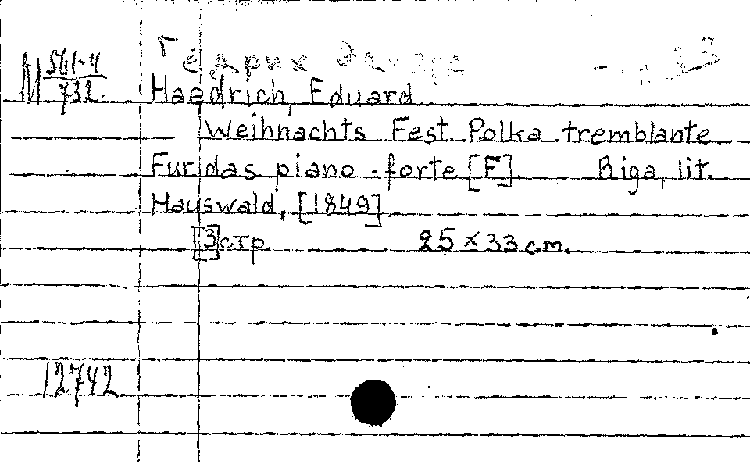 М 561-4
732.
Haedrich, Eduard
Weihnachts Fest Polka tremblante
Fur das piano-forte [F] Riga, lit.
Hauswald, [1849]
[3] стр. 25 x 33 см.
12742